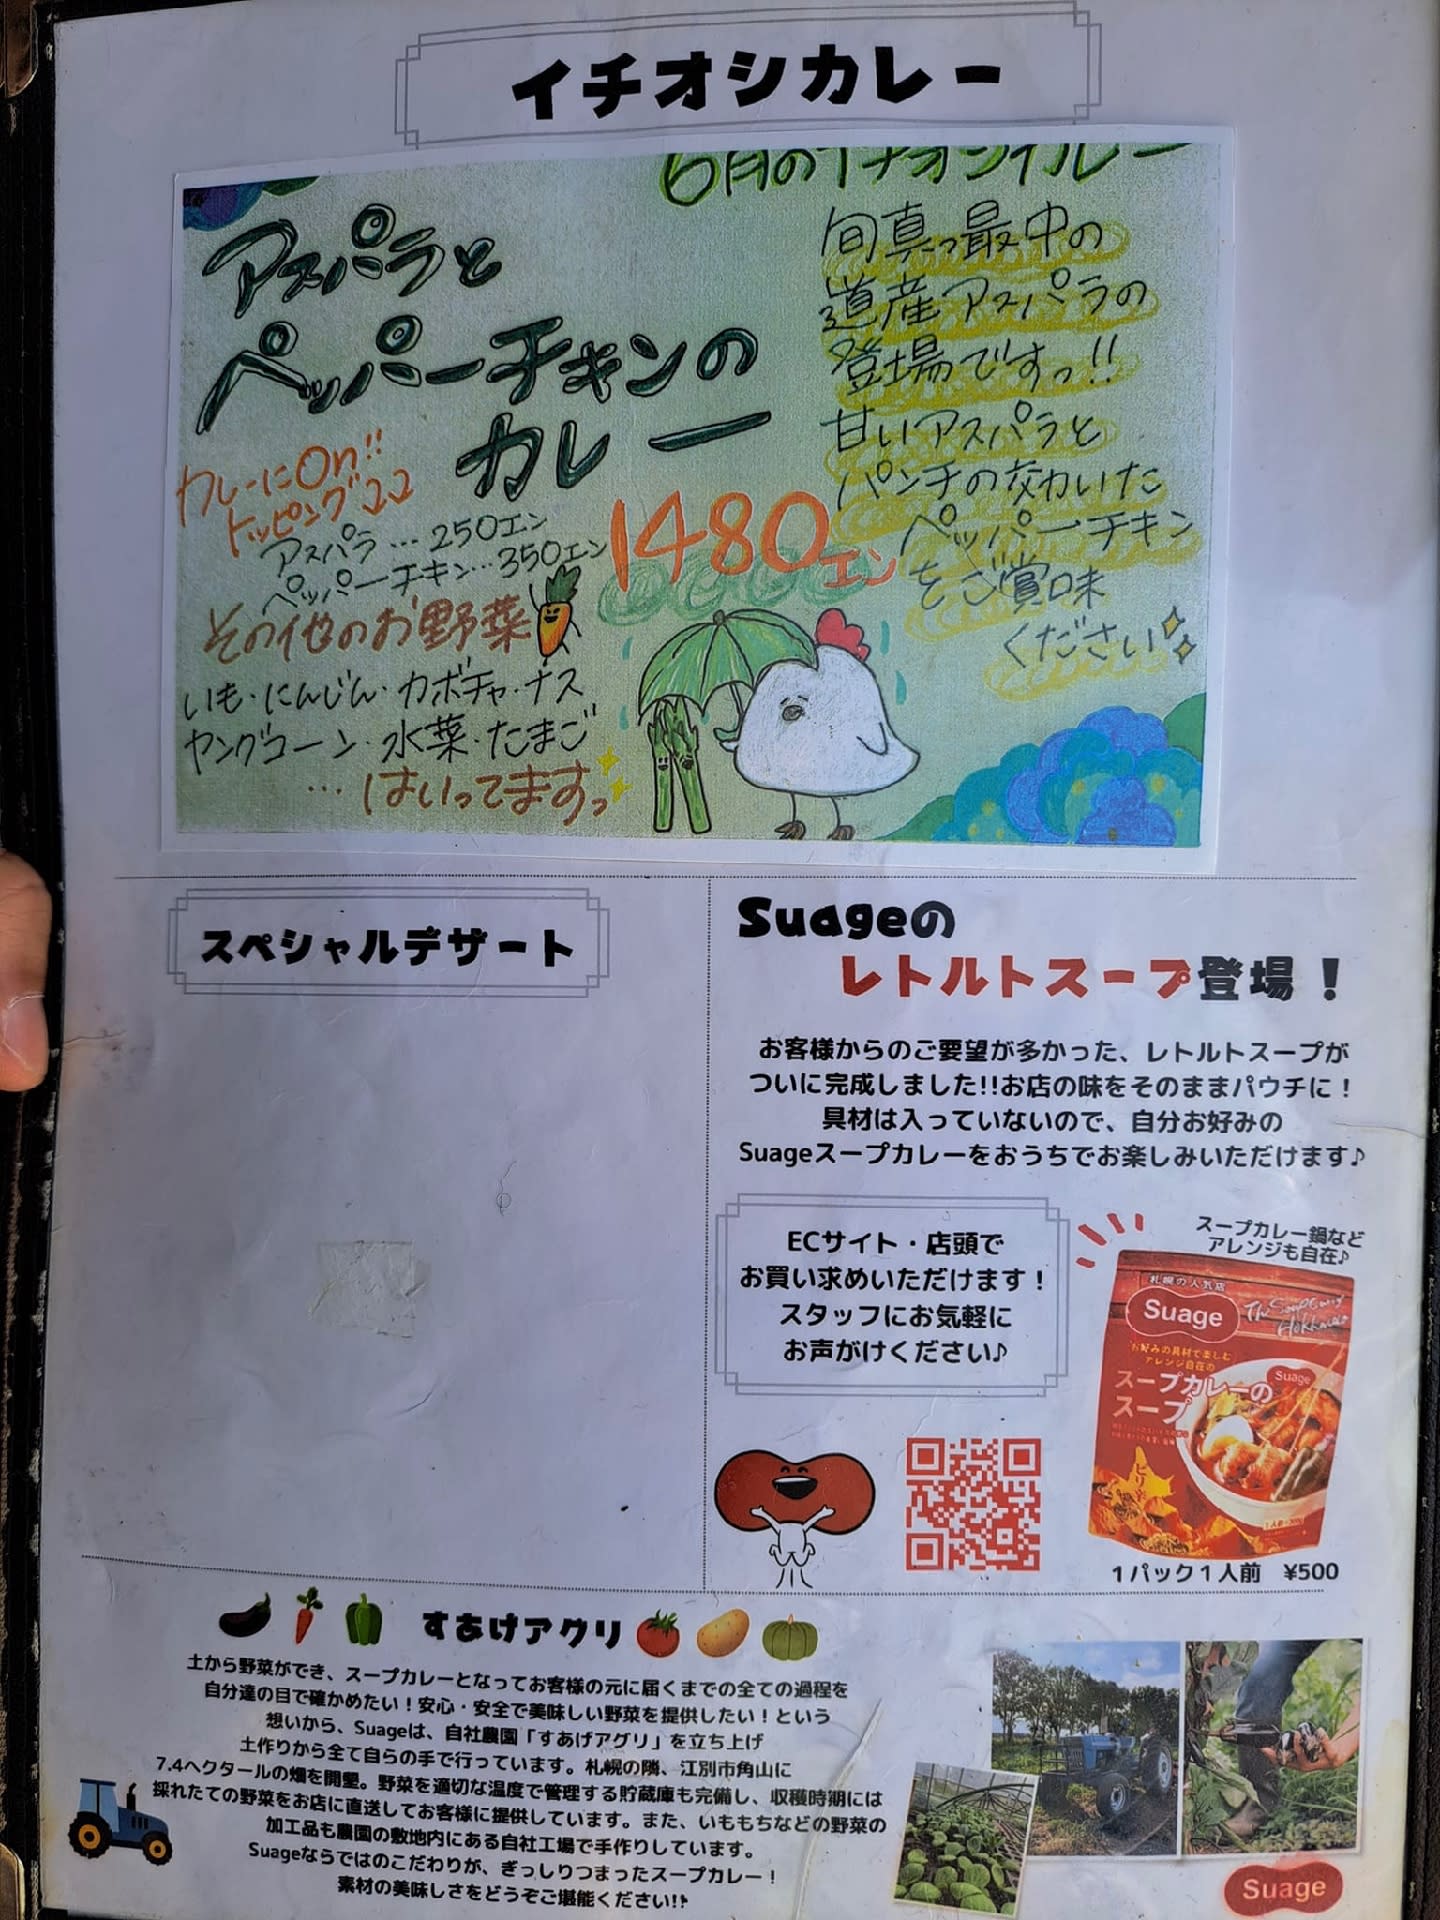 イチオシカレー
6月のイチオシカレー
アスパラと
ペッパーチキンの
カレー
旬真っ最中の
道産アスパラの
登場ですっ!!
甘いアスパラと
パンチの効いた
ペッパーチキン
をご賞味
ください
カレーにOn!!
トッピングココ
アスパラ…250エン
ペッパーチキン…350エン
1480エン
その他のお野菜
いも・にんじん・カボチャ・ナス
ヤングコーン・水菜・たまご
…はいってますっ
スペシャルデザート
Suageの
レトルトスープ登場！
お客様からのご要望が多かった、レトルトスープが
ついに完成しました!!お店の味をそのままパウチに！
具材は入っていないので、自分お好みの
Suageスープカレーをおうちでお楽しみいただけます♪
ECサイト・店頭で
お買い求めいただけます！
スタッフにお気軽に
お声がけください♪
スープカレー鍋など
アレンジも自在♪
札幌の人気店
Suage
The Soup Curry
Hokkaido
お好みの具材で楽しむ
アレンジ自在の
スープカレーの
スープ
Suage
ピリ辛
1パック1人前 ¥500
すあげアグリ
土から野菜ができ、スープカレーとなってお客様の元に届くまでの全ての過程を
自分達の目で確かめたい！安心・安全で美味しい野菜を提供したい！という
想いから、Suageは、自社農園「すあげアグリ」を立ち上げ
土作りから全て自らの手で行っています。札幌の隣、江別市角山に
7.4ヘクタールの畑を開墾。野菜を適切な温度で管理する貯蔵庫も完備し、収穫時期には
採れたての野菜をお店に直送してお客様に提供しています。また、いももちなどの野菜の
加工品も農園の敷地内にある自社工場で手作りしています。
Suageならではのこだわりが、ぎっしりつまったスープカレー！
素材の美味しさをどうぞご堪能ください!!
Suage